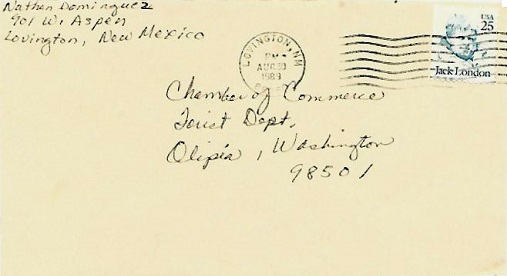 Nathan Dominguez
901 W. Aspen
Lovington, New Mexico
LOVINGTON, NM
PM
AUG 30
1989
USA
25
Jack London
Chamber of Commerce
Torist Dept.
Olipia, Washington
98501